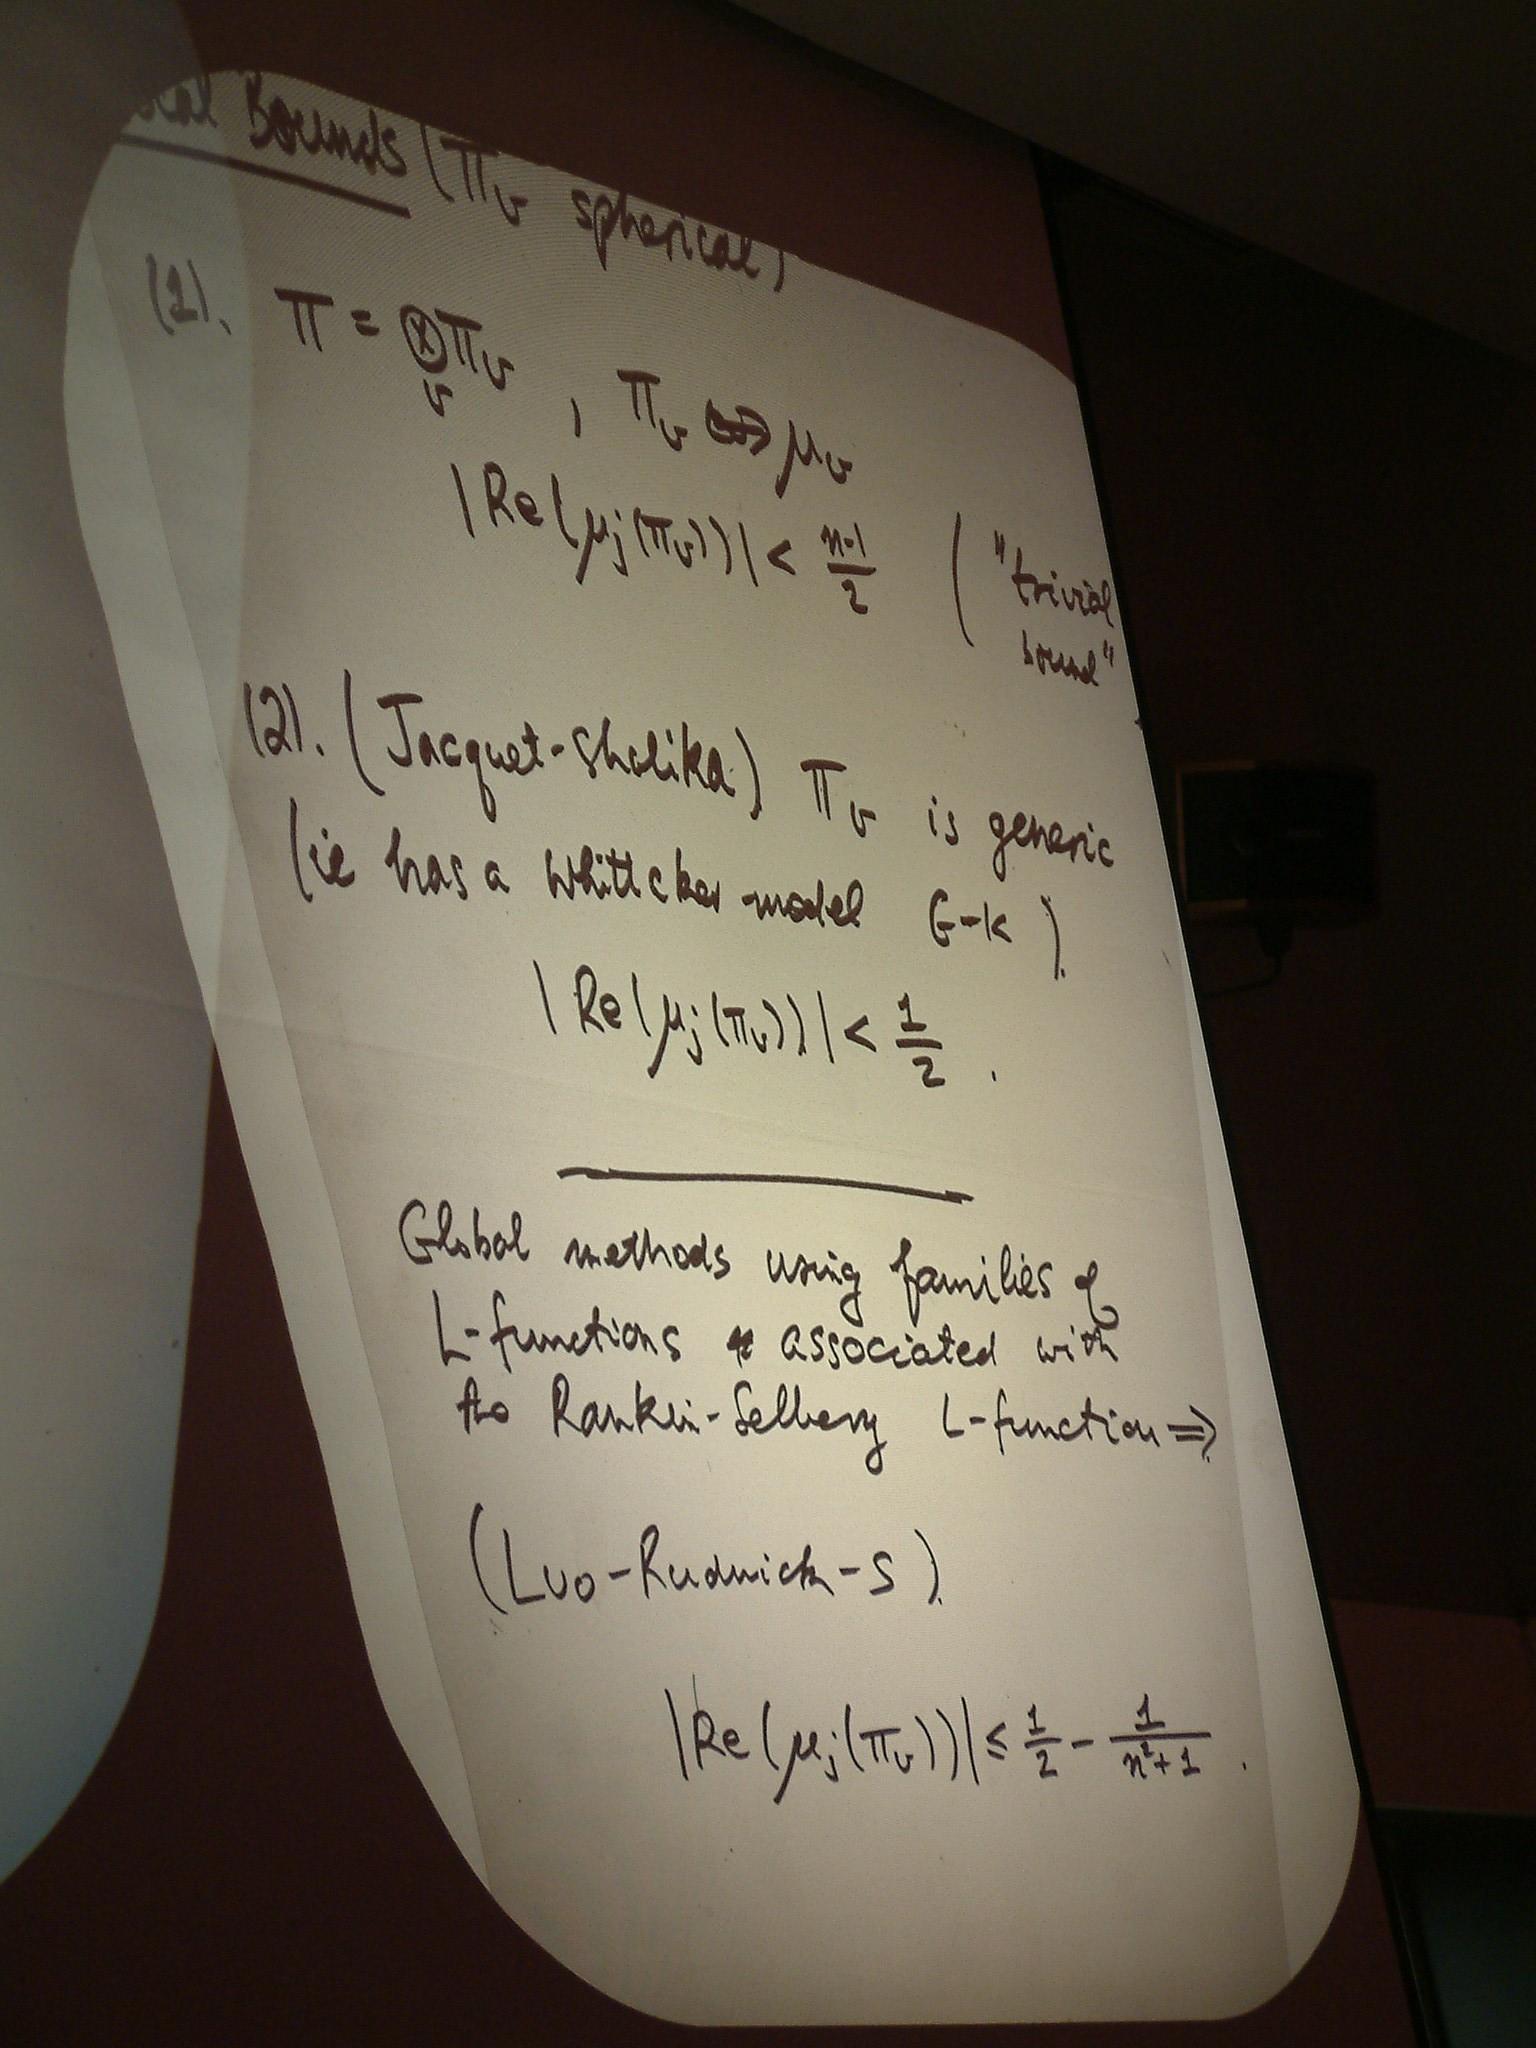 Bounds (π_v spherical)
(1). π = ⊗_v π_v , π_v ⟺ μ_v
|Re(μ_j(π_v))| < (n-1)/2 ( "trivial
bound"
(2). (Jacquet-Shalika) π_v is generic
(ie has a Whittaker model G-K).
|Re(μ_j(π_v))| < 1/2 .
Global methods using families of
L-functions associated with
the Rankin-Selberg L-function ⇒
(Luo-Rudnick-S).
|Re(μ_j(π_v))| ≤ 1/2 - 1/(n²+1) .